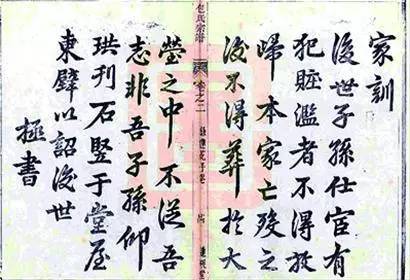 家訓
後世子孫仕官有
犯賍濫者不得放
歸本家亡歿之
後不得葬於大
包氏宗譜
卷之二
塋之中不從吾
志非吾子孫仰
珙刊石豎于堂屋
東壁以詔後世
拯書